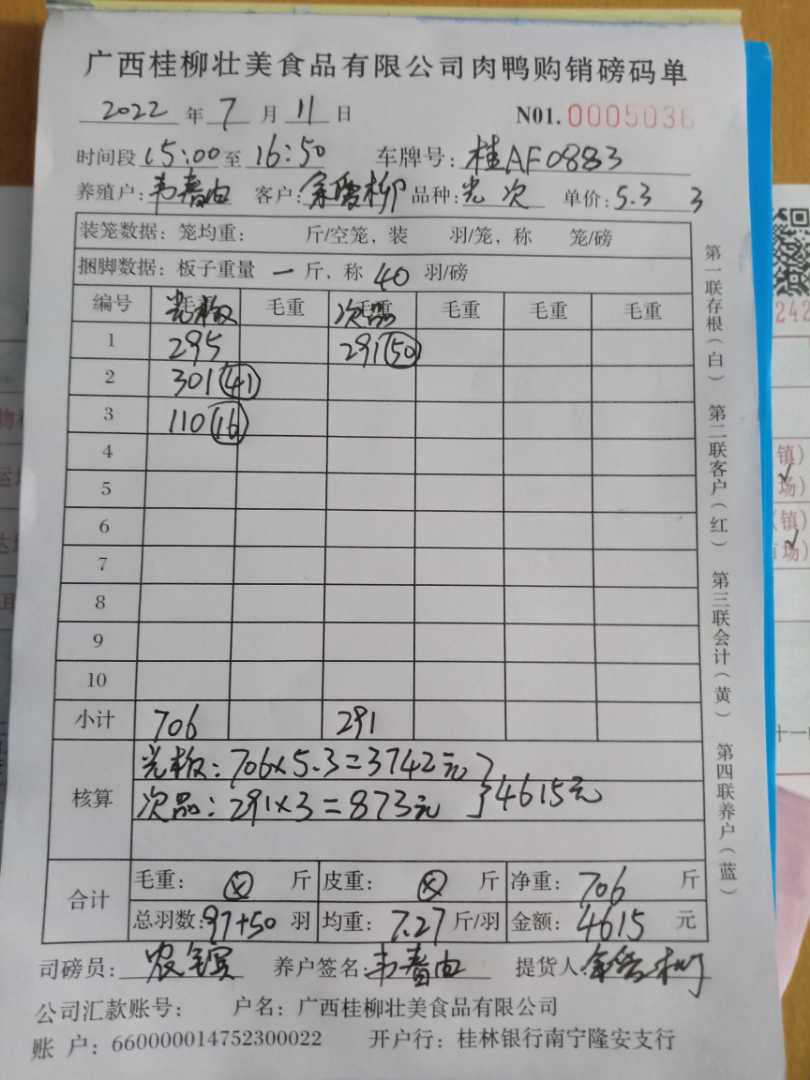 广西桂柳壮美食品有限公司肉鸭购销磅码单
2022 年 7 月 11 日 N01. 0005036
时间段 15:00 至 16:50 车牌号: 桂AF0883
养殖户: 韦 客户: 柳 品种: 光 次 单价: 5.3 3
装笼数据: 笼均重: 斤/空笼, 装 羽/笼, 称 笼/磅
捆脚数据: 板子重量 一 斤, 称 40 羽/磅
编号 光板 毛重 次品 毛重 毛重 毛重
1 295 291 (50)
2 301 (41)
3 110 (16)
4
5
6
7
8
9
10
小计 706 291
核算
光板: 706×5.3=3742元
次品: 291×3=873元 } 4615元
合计
毛重: ⊗ 斤 皮重: ⊗ 斤 净重: 706 斤
总羽数: 97+50 羽 均重: 7.27 斤/羽 金额: 4615 元
司磅员: 农 养户签名: 韦 提货人:
公司汇款账号: 户名: 广西桂柳壮美食品有限公司
账 户: 660000014752300022 开户行: 桂林银行南宁隆安支行
第一联存根(白) 第二联客户(红) 第三联会计(黄) 第四联养户(蓝)
242
镇)
场)
(镇)
市场)
十一